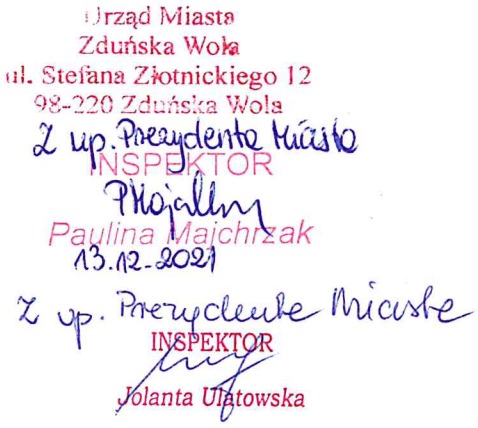 Urząd Miasta
Zduńska Wola
ul. Stefana Złotnickiego 12
98-220 Zduńska Wola
Z up. Prezydenta Miasta
INSPEKTOR
PMajchrzak
Paulina Majchrzak
13.12.2021
Z up. Prezydenta Miasta
INSPEKTOR
Jolanta Ulatowska